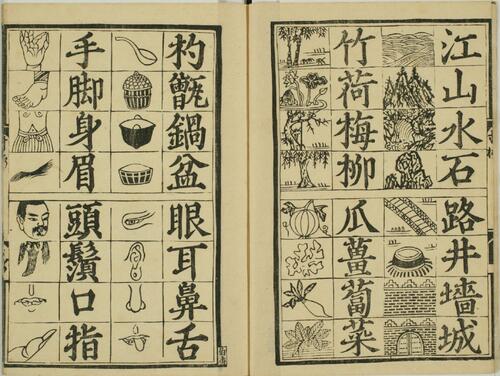 江山水石路井墻城
竹荷梅柳瓜薑蔔菜
杓甑鍋盆眼耳鼻舌
手脚身眉頭鬚口指